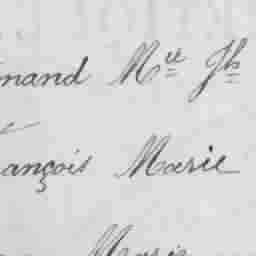 mand Mie Jh
ançois Marie
Marie